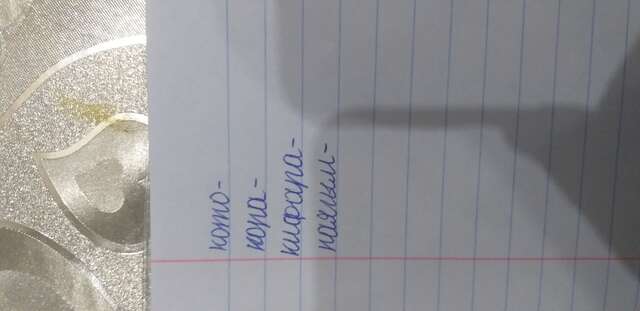 кото-
кора-
кифара-
наяным-